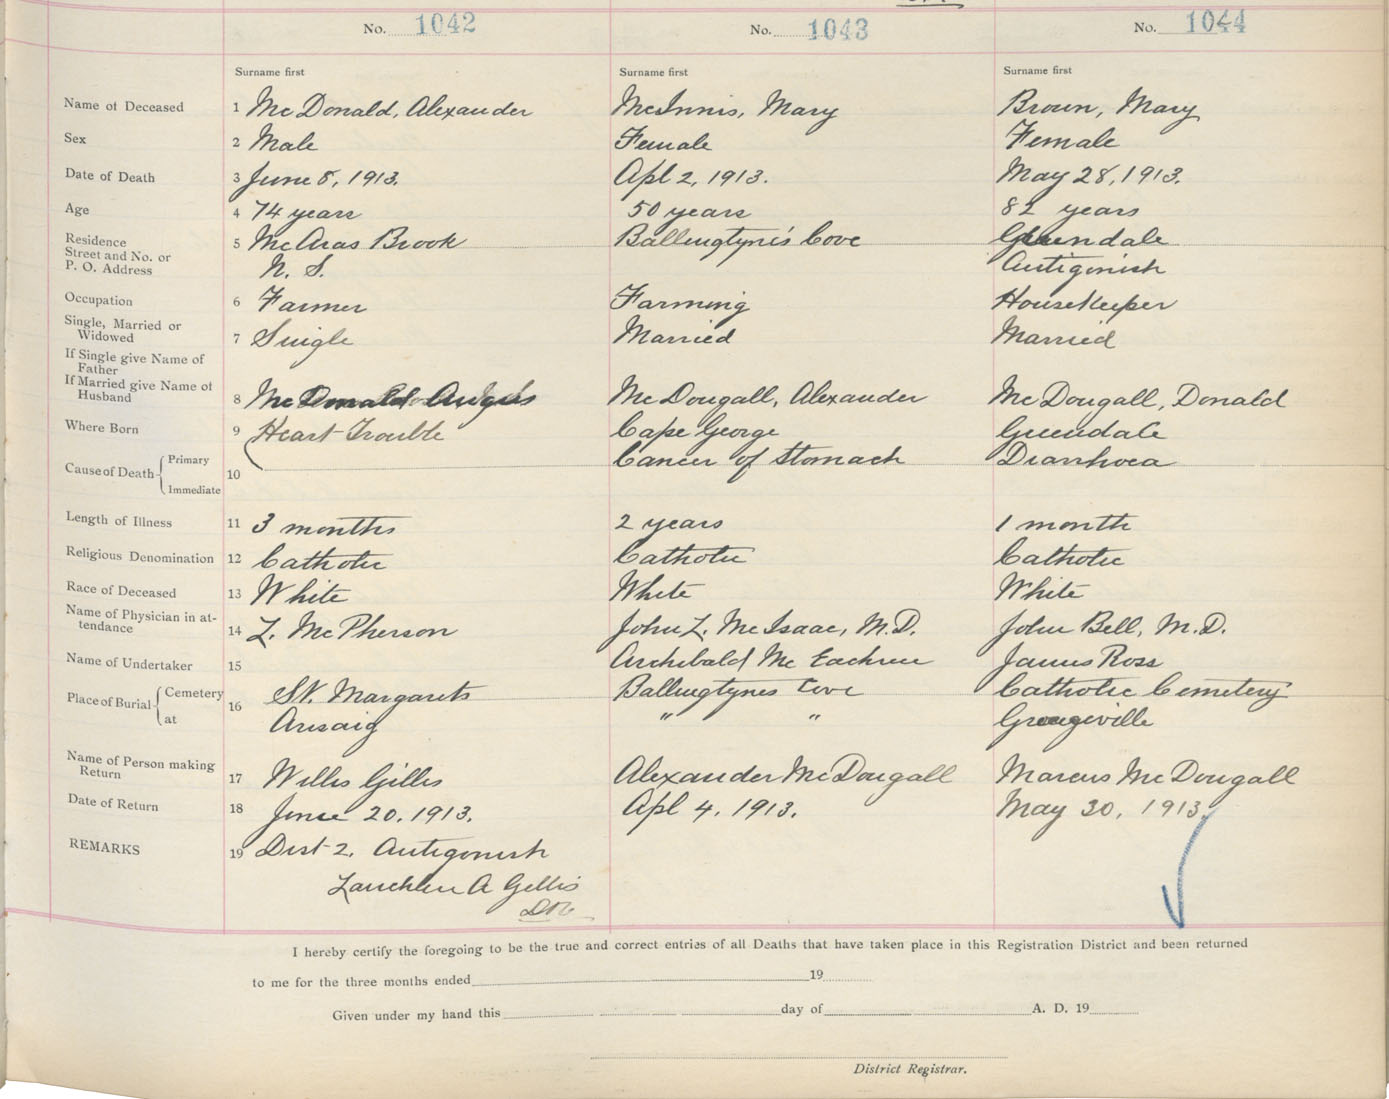 No. 1042 No. 1043 No. 1044
Surname first Surname first Surname first
Name of Deceased 1 McDonald, Alexander McInnis, Mary Brown, Mary
Sex 2 Male Female Female
Date of Death 3 June 8, 1913. Apl 2, 1913. May 28, 1913.
Age 4 74 years 50 years 82 years
Residence 5 McAras Brook Ballingtyne's Cove Greendale
Street and No. or
P. O. Address N. S. Antigonish
Occupation 6 Farmer Farming Housekeeper
Single, Married or
Widowed 7 Single Married Married
If Single give Name of
Father
If Married give Name of
Husband 8 McDonald Angus McDougall, Alexander McDougall, Donald
Where Born 9 Heart Trouble Cape George Greendale
Cause of Death Primary 10 Cancer of Stomach Diarrhoea
Immediate
Length of Illness 11 3 months 2 years 1 month
Religious Denomination 12 Catholic Catholic Catholic
Race of Deceased 13 White White White
Name of Physician in at-
tendance 14 L. McPherson John L. McIsaac, M.D. John Bell, M.D.
Name of Undertaker 15 Archibald McEachren James Ross
Place of Burial Cemetery 16 St. Margarets Ballingtynes Cove Catholic Cemetery
at Arisaig " " Georgeville
Name of Person making
Return 17 Willis Gillis Alexander McDougall Marcus McDougall
Date of Return 18 June 20, 1913. Apl 4, 1913. May 30, 1913.
REMARKS 19 Dist 2. Antigonish
Lauchlin A Gillis
I hereby certify the foregoing to be the true and correct entries of all Deaths that have taken place in this Registration District and been returned
to me for the three months ended 19
Given under my hand this day of A. D. 19
District Registrar.